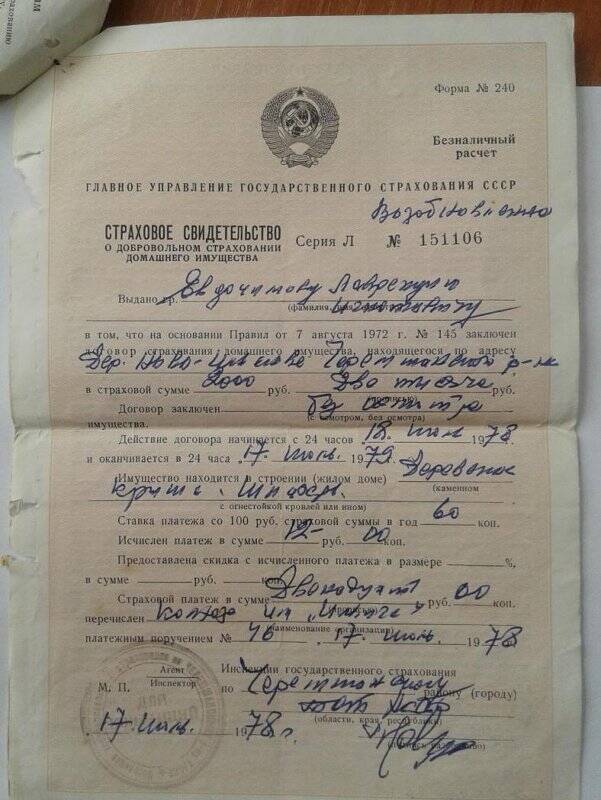 Форма № 240
Безналичный
расчет
ГЛАВНОЕ УПРАВЛЕНИЕ ГОСУДАРСТВЕННОГО СТРАХОВАНИЯ СССР
СТРАХОВОЕ СВИДЕТЕЛЬСТВО
О ДОБРОВОЛЬНОМ СТРАХОВАНИИ
ДОМАШНЕГО ИМУЩЕСТВА
Серия Л № 151106
Выдано гр. Евдокимову
в том, что на основании Правил от 7 августа 1972 г. № 145 заключен
договор страхования домашнего имущества, находящегося по адресу
Дер.
в страховой сумме 2000 руб. Две тысячи
Договор заключен без осмотра
(с осмотром, без осмотра)
имущества.
Действие договора начинается с 24 часов 18 июля 1978
и оканчивается в 24 часа 17 июль 1979
Имущество находится в строении (жилом доме)
(каменном
с огнестойкой кровлей или ином)
Ставка платежа со 100 руб. страховой суммы в год 60 коп.
Исчислен платеж в сумме 12- 00 коп.
Предоставлена скидка с исчисленного платежа в размере %,
в сумме руб. коп.
Страховой платеж в сумме Двенадцать руб. 00 коп.
перечислен
(наименование организации)
платежным поручением № 46 17 июль 1978
Агент
Инспектор
М. П.
Инспекции государственного страхования
по району (городу)
(области, края, республики)
17 июль 78 г.